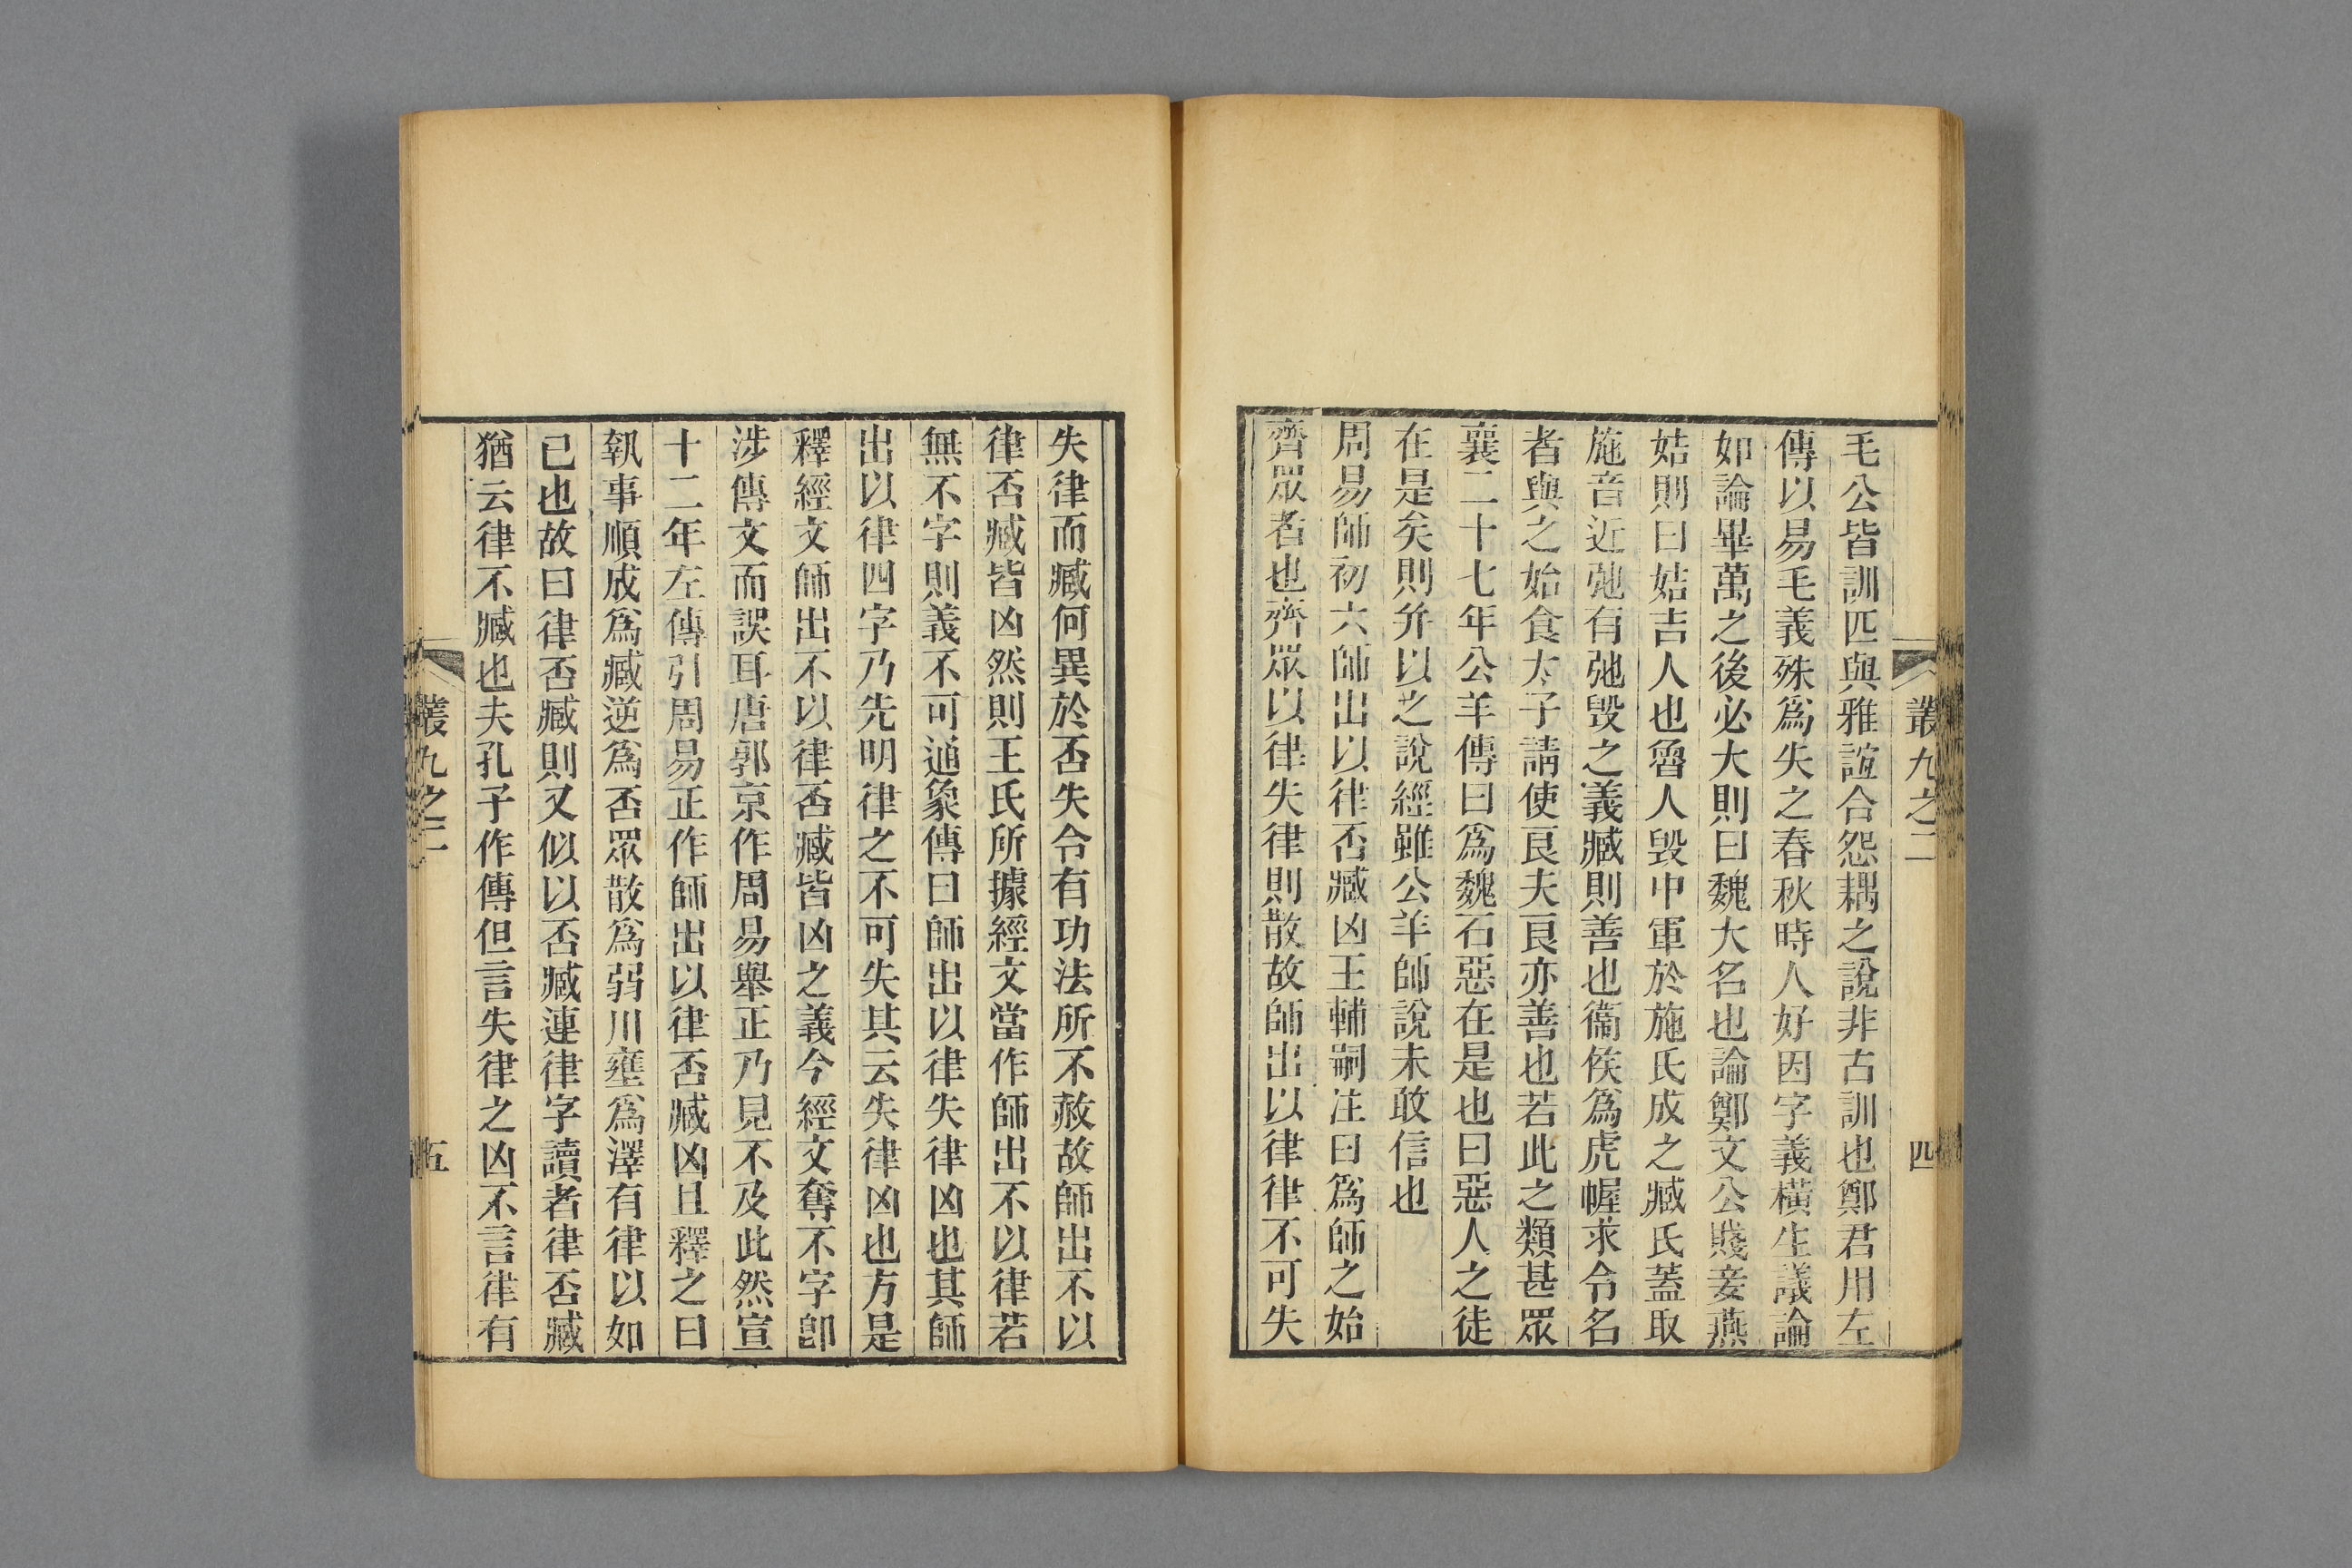 叢九之二
四
毛公皆訓匹與雅誼合怨耦之說非古訓也鄭君用左
傳以易毛義殊爲失之春秋時人好因字義橫生議論
如論畢萬之後必大則曰魏大名也論鄭文公賤妾燕
姞則曰姞吉人也魯人毀中軍於施氏成之臧氏蓋取
施音近弛有弛毀之義臧則善也衞侯爲虎幄求令名
者與之始食太子請使良夫良亦善也若此之類甚眾
襄二十七年公羊傳曰爲魏石惡在是也曰惡人之徒
在是矣則幷以之說經雖公羊師說未敢信也
周易師初六師出以律否臧凶王輔嗣注曰爲師之始
齊眾者也齊眾以律失律則散故師出以律律不可失
失律而臧何異於否失令有功法所不赦故師出不以
律否臧皆凶然則王氏所據經文當作師出不以律若
無不字則義不可通象傳曰師出以律失律凶也其師
出以律四字乃先明律之不可失其云失律凶也方是
釋經文師出不以律否臧皆凶之義今經文奪不字卽
涉傳文而誤耳唐郭京作周易舉正乃見不及此然宣
十二年左傳引周易正作師出以律否臧凶且釋之曰
執事順成爲臧逆爲否眾散爲弱川壅爲澤有律以如
已也故曰律否臧則又似以否臧連律字讀者律否臧
猶云律不臧也夫孔子作傳但言失律之凶不言律有
叢九之二
五